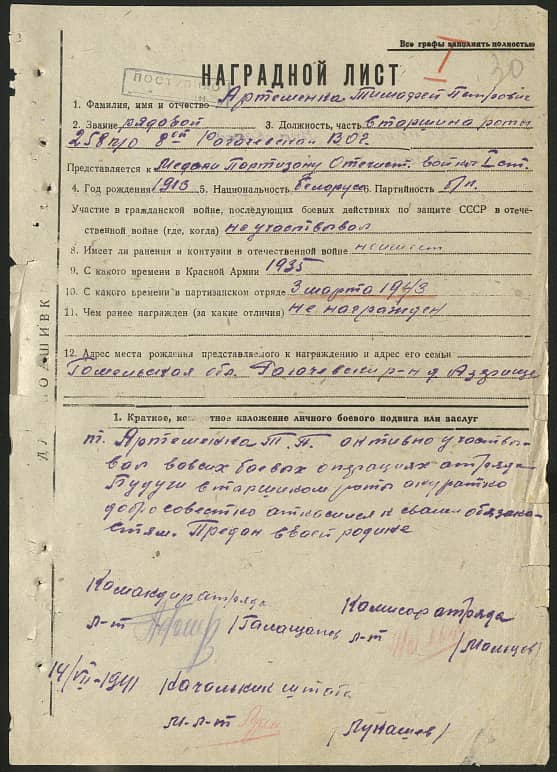 Все графы заполнять полностью
I 30
ПОСТУПИЛО
НАГРАДНОЙ ЛИСТ
1. Фамилия, имя и отчество Артеменка Тимафей Петровіс
2. Звание рядовой 3. Должность, часть в таршина роты
258 п/о 8ой Рогачевской ВОГ.
Представляется к Медали Партизану Отечист. войны I ст.
4. Год рождения 1913 5. Национальность белорус 6. Партийность б/п.
Участие в гражданской войне, последующих боевых действиях по защите СССР в отече-
ственной войне (где, когда) не участвывал
8. Имеет ли ранения и контузии в отечественной войне неимеет
9. С какого времени в Красной Армии 1935
10. С какого времени в партизанском отряде 3 марта 1943
11. Чем ранее награжден (за какие отличия) не награжден
12. Адрес места рождения представляемого к награждению и адрес его семьи
Гомельская обл. Рогачевский р-н д.
1. Краткое, конкретное изложение личного боевого подвига или заслуг
т. Артеменка Т. П. активно участвы-
вал вовсих боевых опирациях атряда
Будучи в таршином роты акуратко
добросовестно аткасился к сваим обязака-
стям. Предан родине
Камандир атряда
Комисар атряда
л-т /Галащапов
л-т /Мальцев/
14/VII-1941 Качальник штаба
м-л-т /Лукашев/
ПОДШИВК